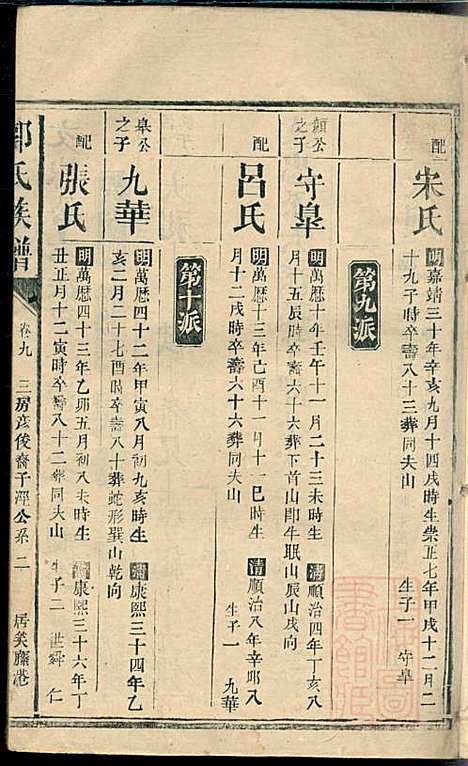 配 宋氏 明嘉靖三十年辛亥九月十四戌時生崇正七年甲戌十二月二
十九子時卒壽八十三葬同夫山 生子一 守皐
第九派
顏公之子 守皐 明萬暦十年壬午十一月二十三未時生 清順治四年丁亥八
月十五辰時卒壽六十六葬下首山即牛眠山辰山戌向
配 呂氏 明萬暦十三年乙酉十一月十一巳時生 清順治八年辛卯八
月十二戌時卒壽六十六葬同夫山 生子一 九華
第十派
皐公之子 九華 明萬暦四十二年甲寅八月初九亥時生 清康熙三十四年乙
亥二月二十七酉時卒壽八十葬蛇形巽山乾向
配 張氏 明萬暦四十三年乙卯五月初八未時生 清康熙三十六年丁
丑正月十二寅時卒壽八十二葬同夫山 生子二 世舜 仁
郭氏族譜 卷九 三房彦俊裔子淫公系二 居矣廡港